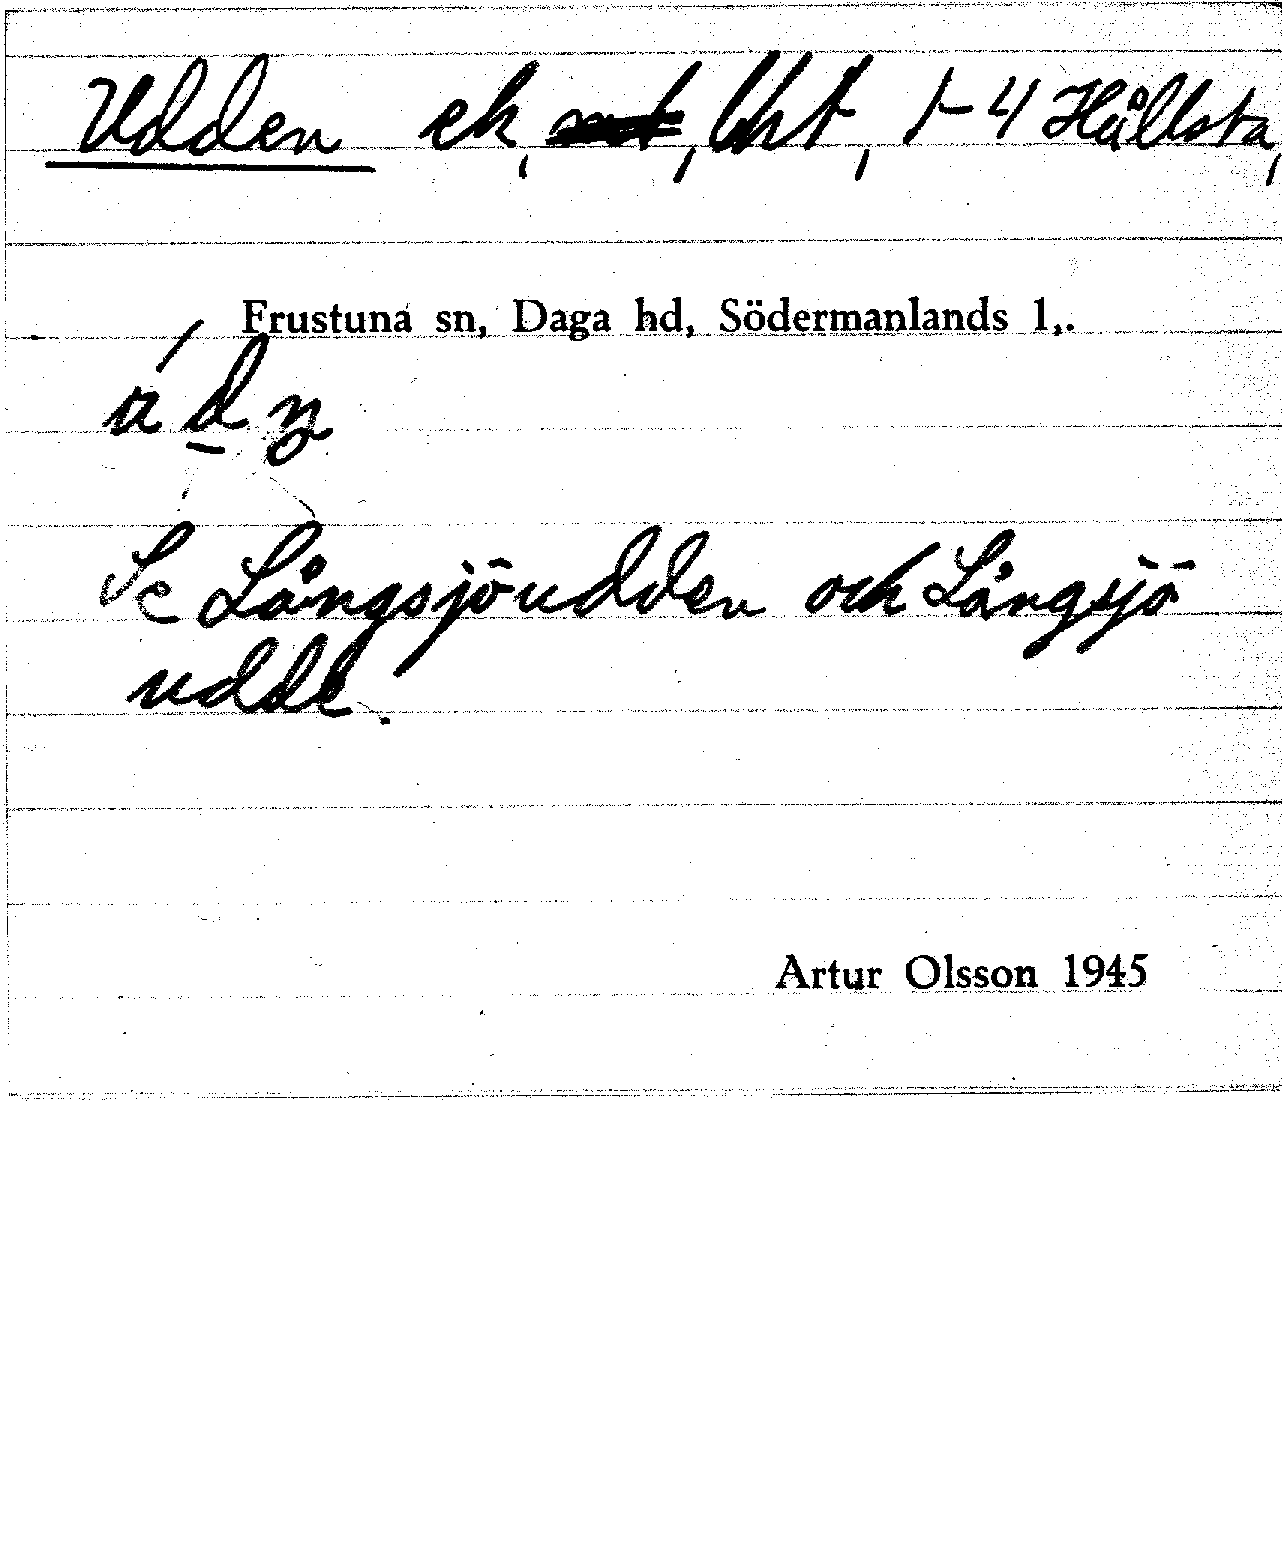 Udden ek, , lht, 1-4 Hållsta,
Frustuna sn, Daga hd, Södermanlands l,.
Se Långsjöudden och Långsjö
udde.
Artur Olsson 1945